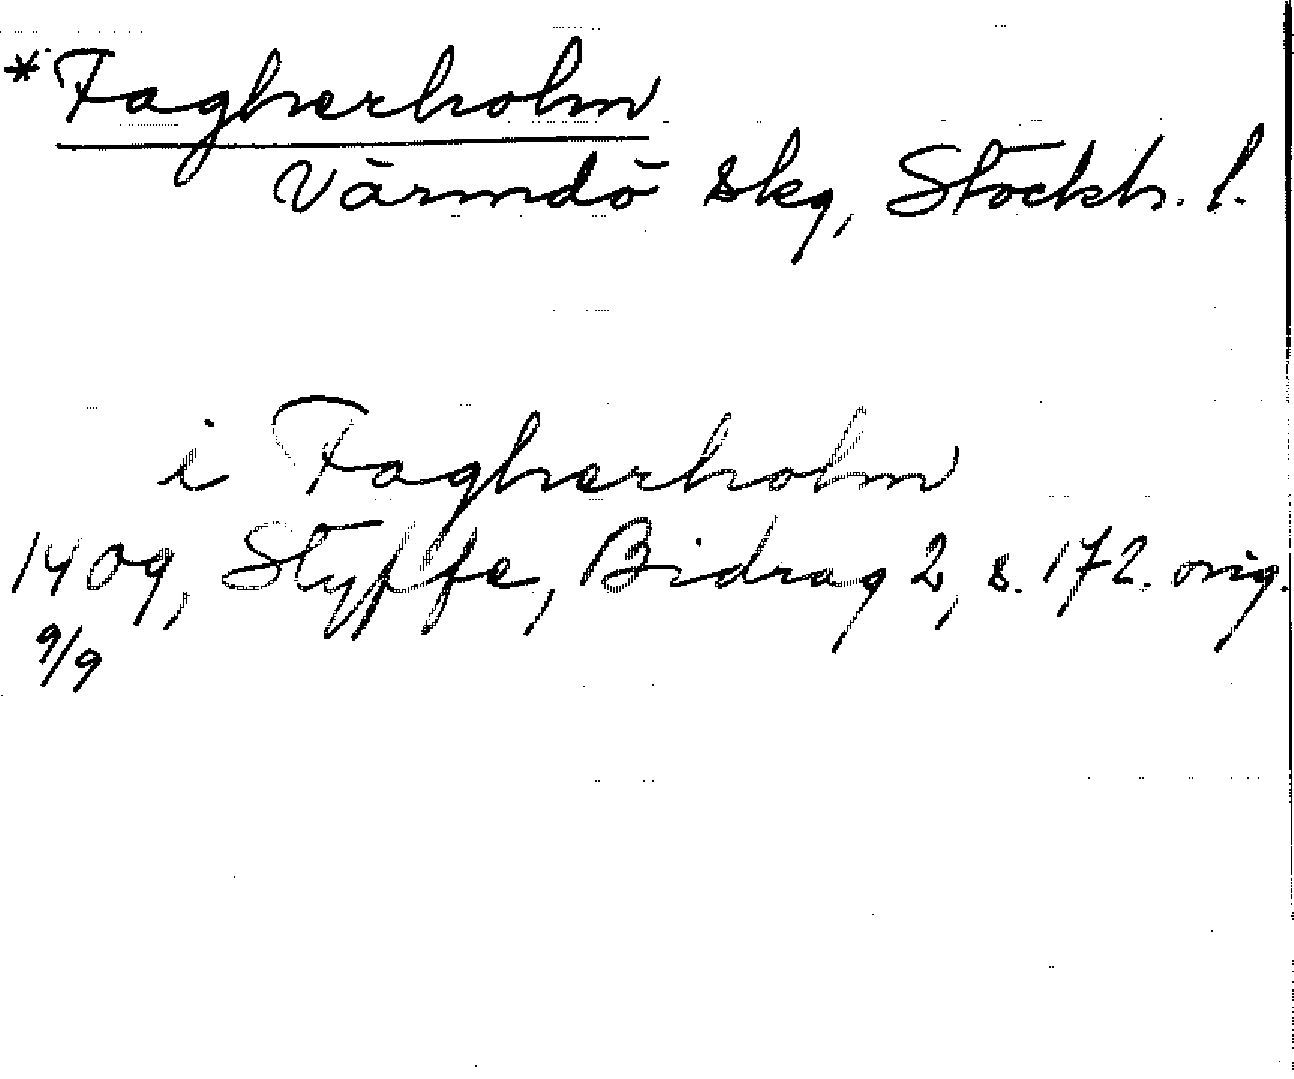 *Fagherholm
Värmdö skg, Stockh. l.
i Fagherholm
1409, Styffe, Bidrag 2, s. 172. orig.
9/9